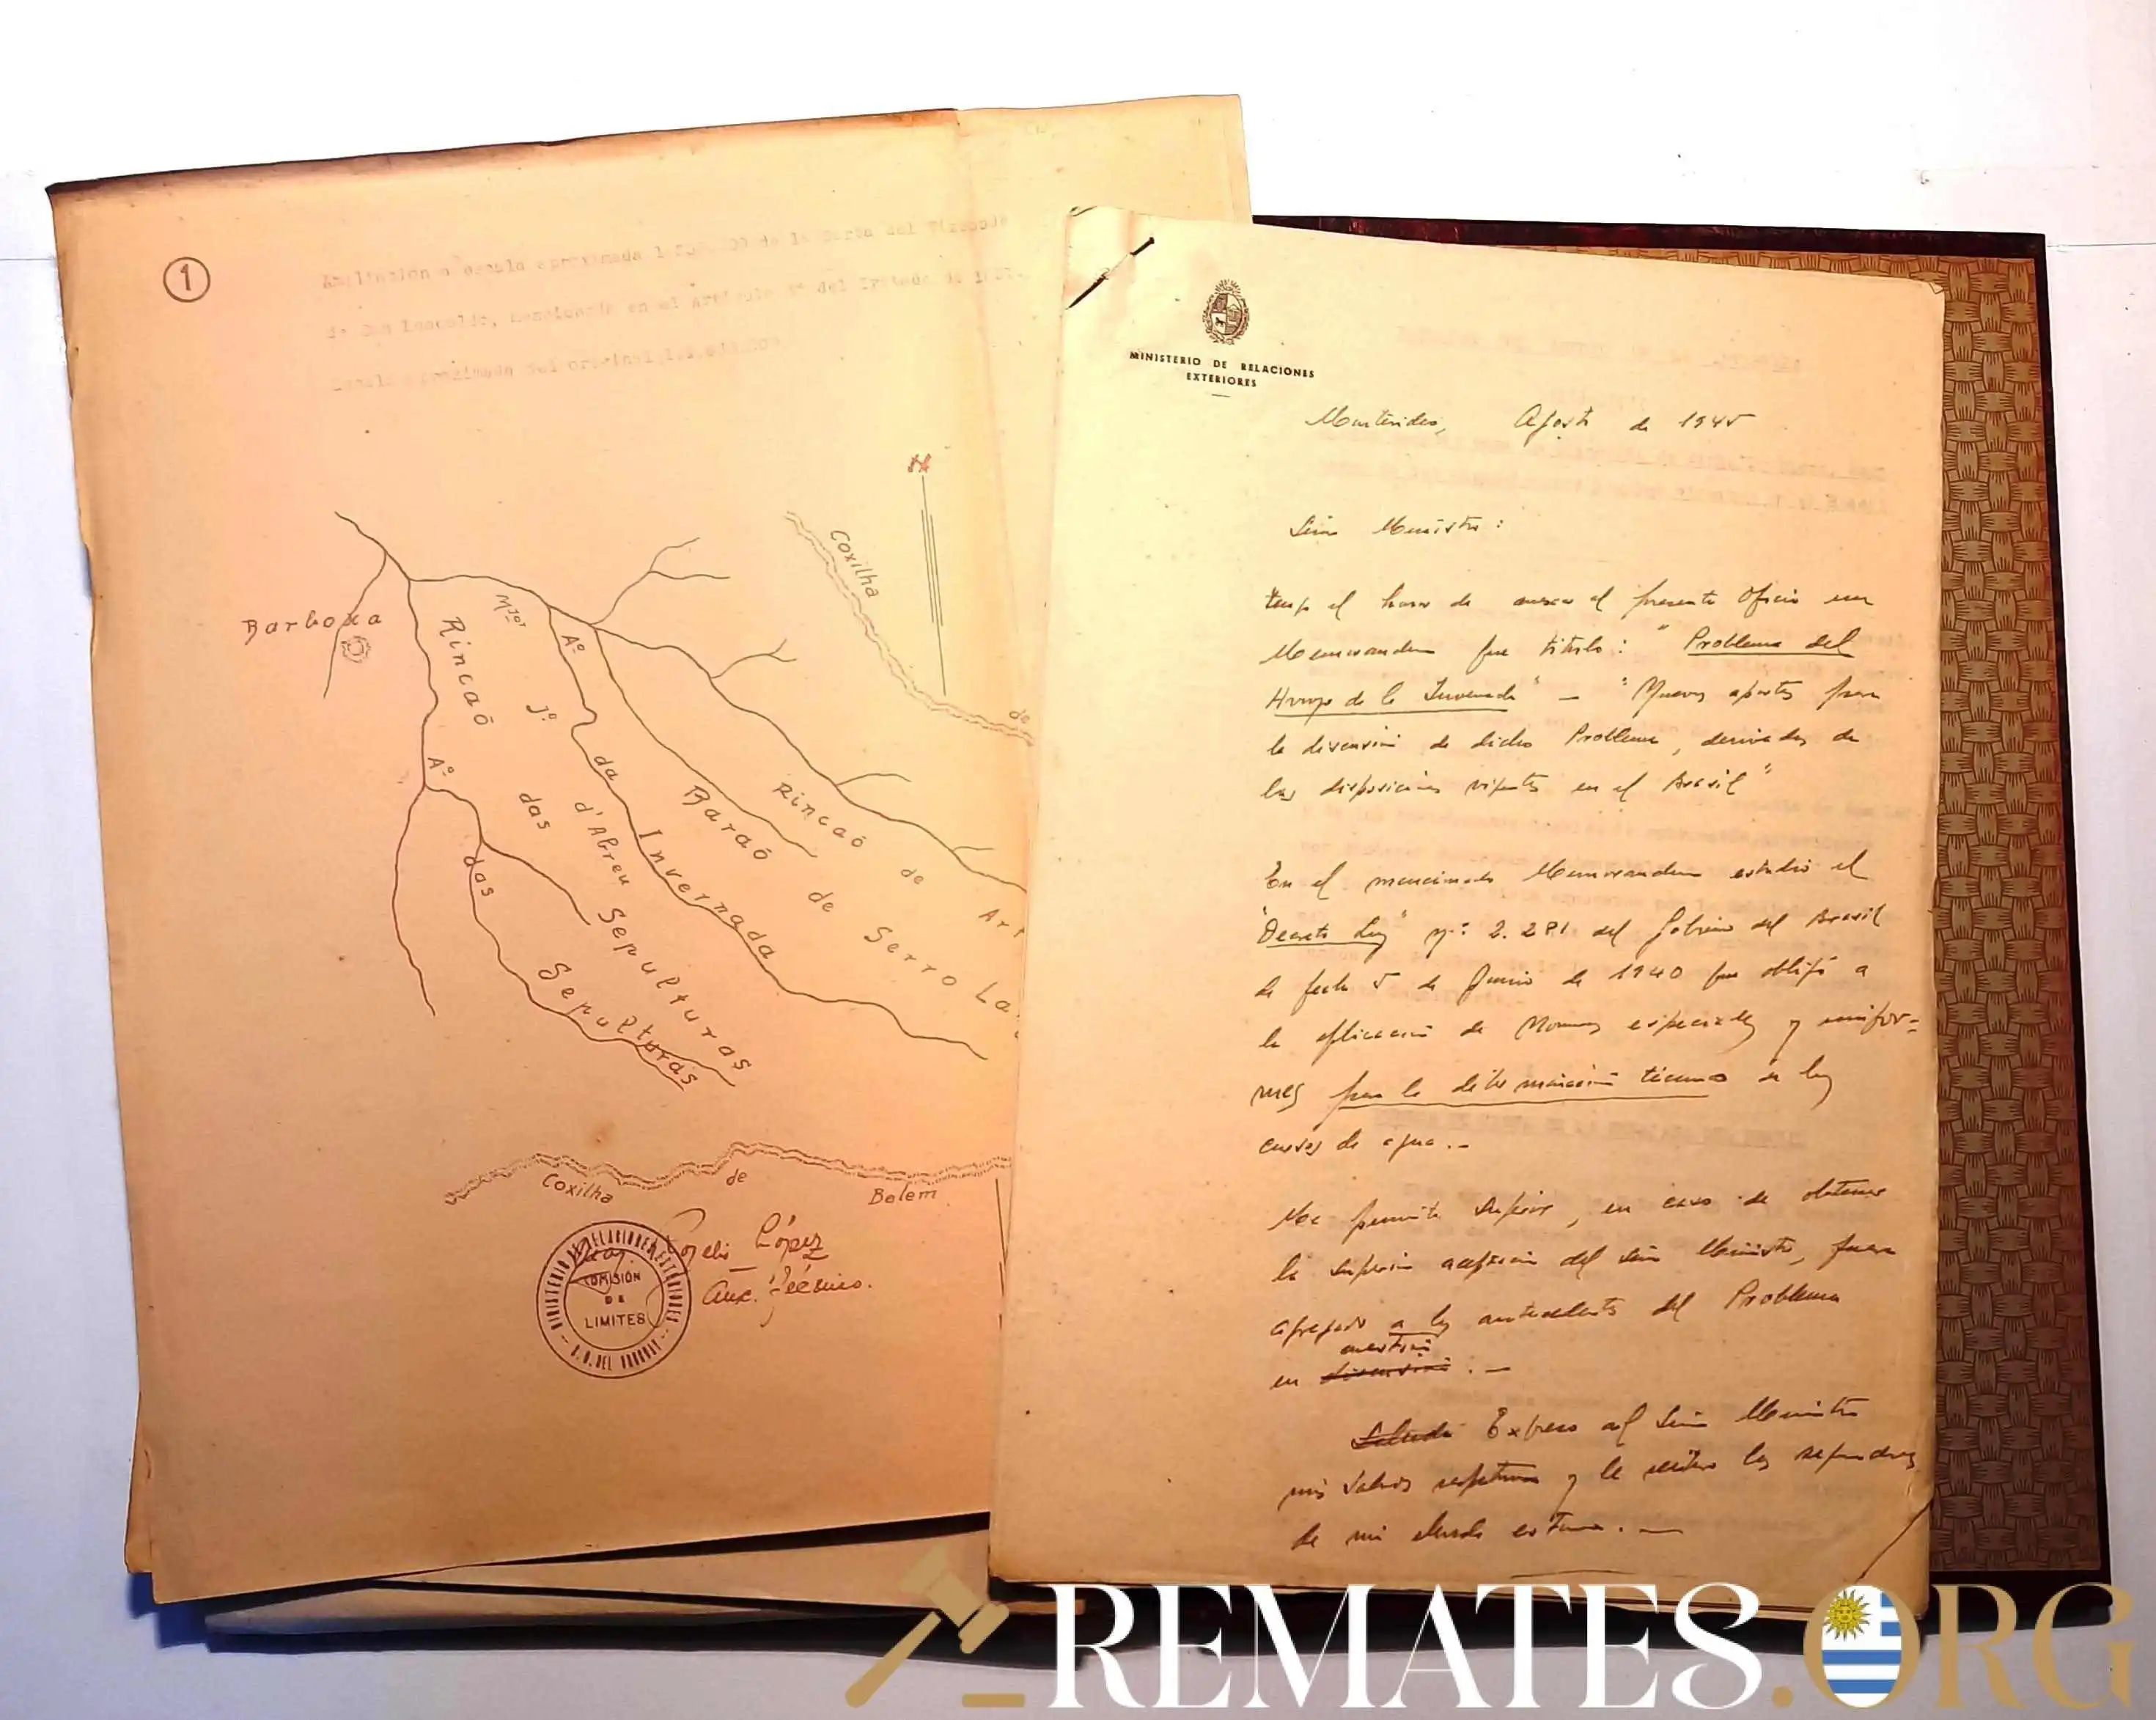 1
Ampliación a escala aproximada 1 de la Carta del Vizconde
de San Leopoldo, mencionada en el Artículo del Tratado de
Escala aproximada del original
N
Coxilha
de
Barboza
Rincaõ
das
Sepulturas
Mjor
Jº
d'Abreu
Aº
da
Invernada
Baraõ
de
Serro
La
Rincaõ
de
Art
Aº
das
Sepulturas
Coxilha
de
Belem
López
Aux. Técnico.
MINISTERIO DE RELACIONES EXTERIORES
COMISIÓN
DE
LIMITES
R. O. DEL URUGUAY
MINISTERIO DE RELACIONES
EXTERIORES
Montevideo, Agosto de 1945
Señor Ministro:
tengo el honor de anexar al presente Oficio un
Memorandum que titulo: "Problema del
Arroyo de la Invernada" — "Nuevos aportes para
la discusión de dicho Problema, derivados de
las disposiciones vigentes en el Brasil"
En el mencionado Memorandum estudio el
"Decreto Ley" Nº: 2.281 del Gobierno del Brasil
de fecha 5 de Junio de 1940 que obligó a
la aplicación de Normas especiales y unifor=
mes para la determinación técnica de los
cursos de agua.-
Me permito sugerir, en caso de obtener
la superior aceptación del Señor Ministro, fuera
agregado a los antecedentes del Problema
cuestión
en discusión.—
Saludo Expreso al Señor Ministro
mis saludos respetuosos y le reitero las seguridades
de mi elevada estima.—
REMATES.ORG